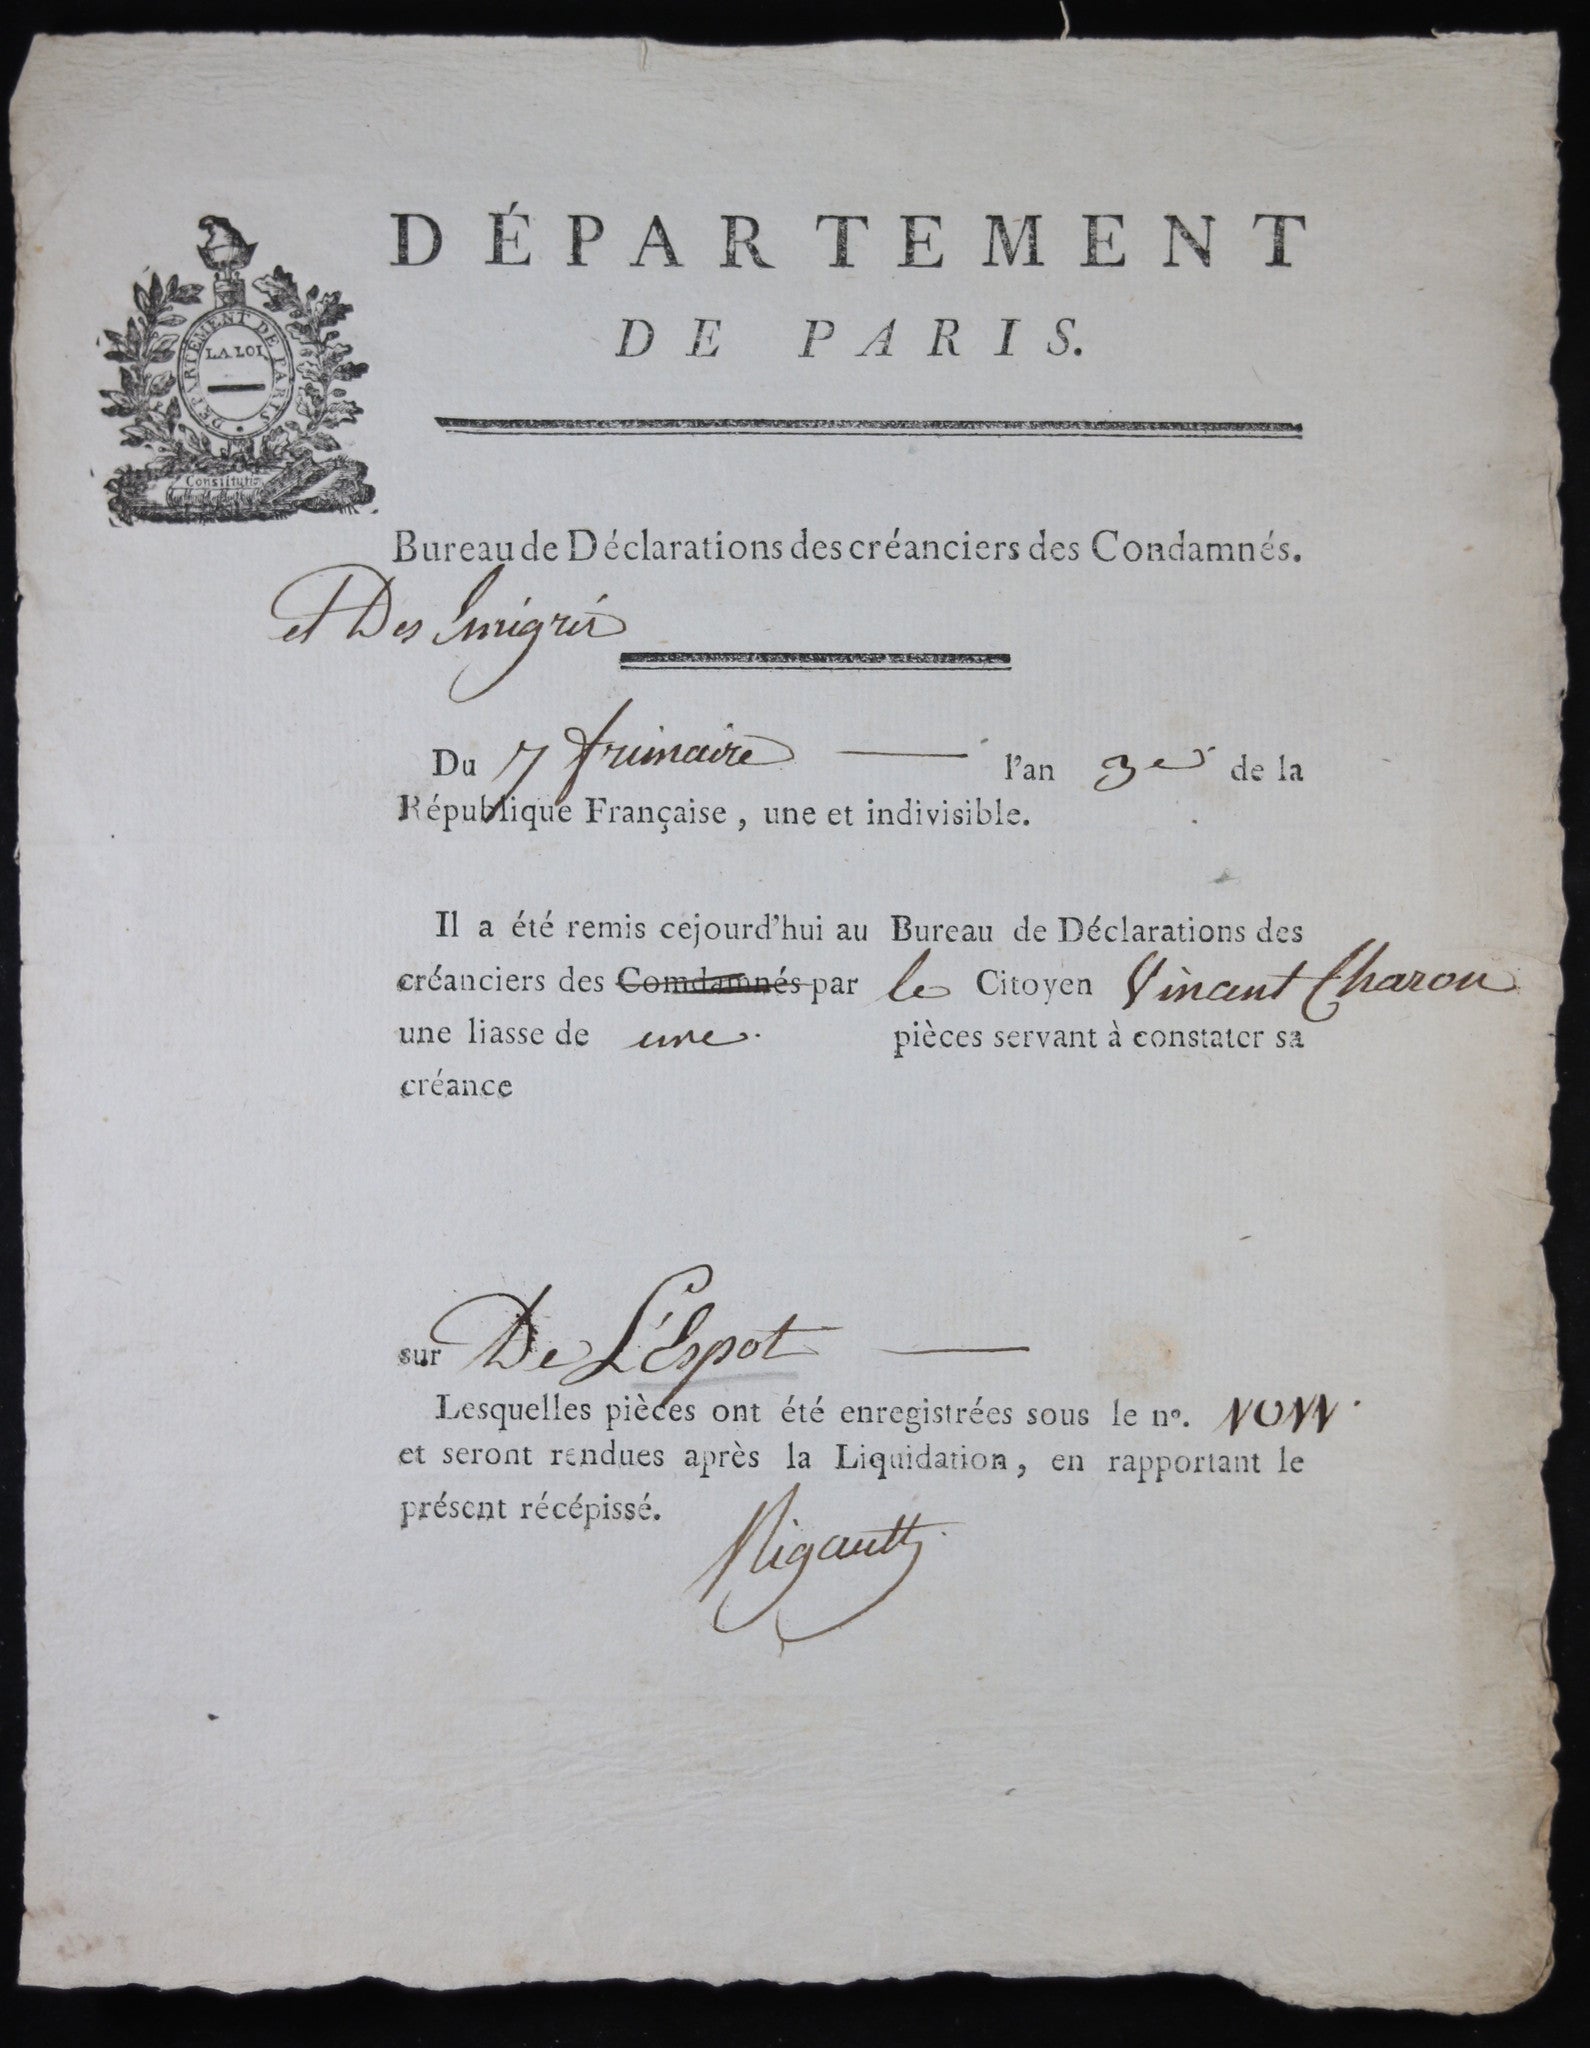 DÉPARTEMENT
DE PARIS.
DÉPARTEMENT DE PARIS
LA LOI
Constitution
Bureau de Déclarations des créanciers des Condamnés.
et Des Emigrés
Du 7 frimaire l'an 3e de la
République Française, une et indivisible.
Il a été remis cejourd'hui au Bureau de Déclarations des
créanciers des Comdamnés par le Citoyen Vincent Charon
une liasse de une pièces servant à constater sa
créance
sur De L'Espot
Lesquelles pièces ont été enregistrées sous le no.
et seront rendues après la Liquidation, en rapportant le
présent récépissé.
Rigault